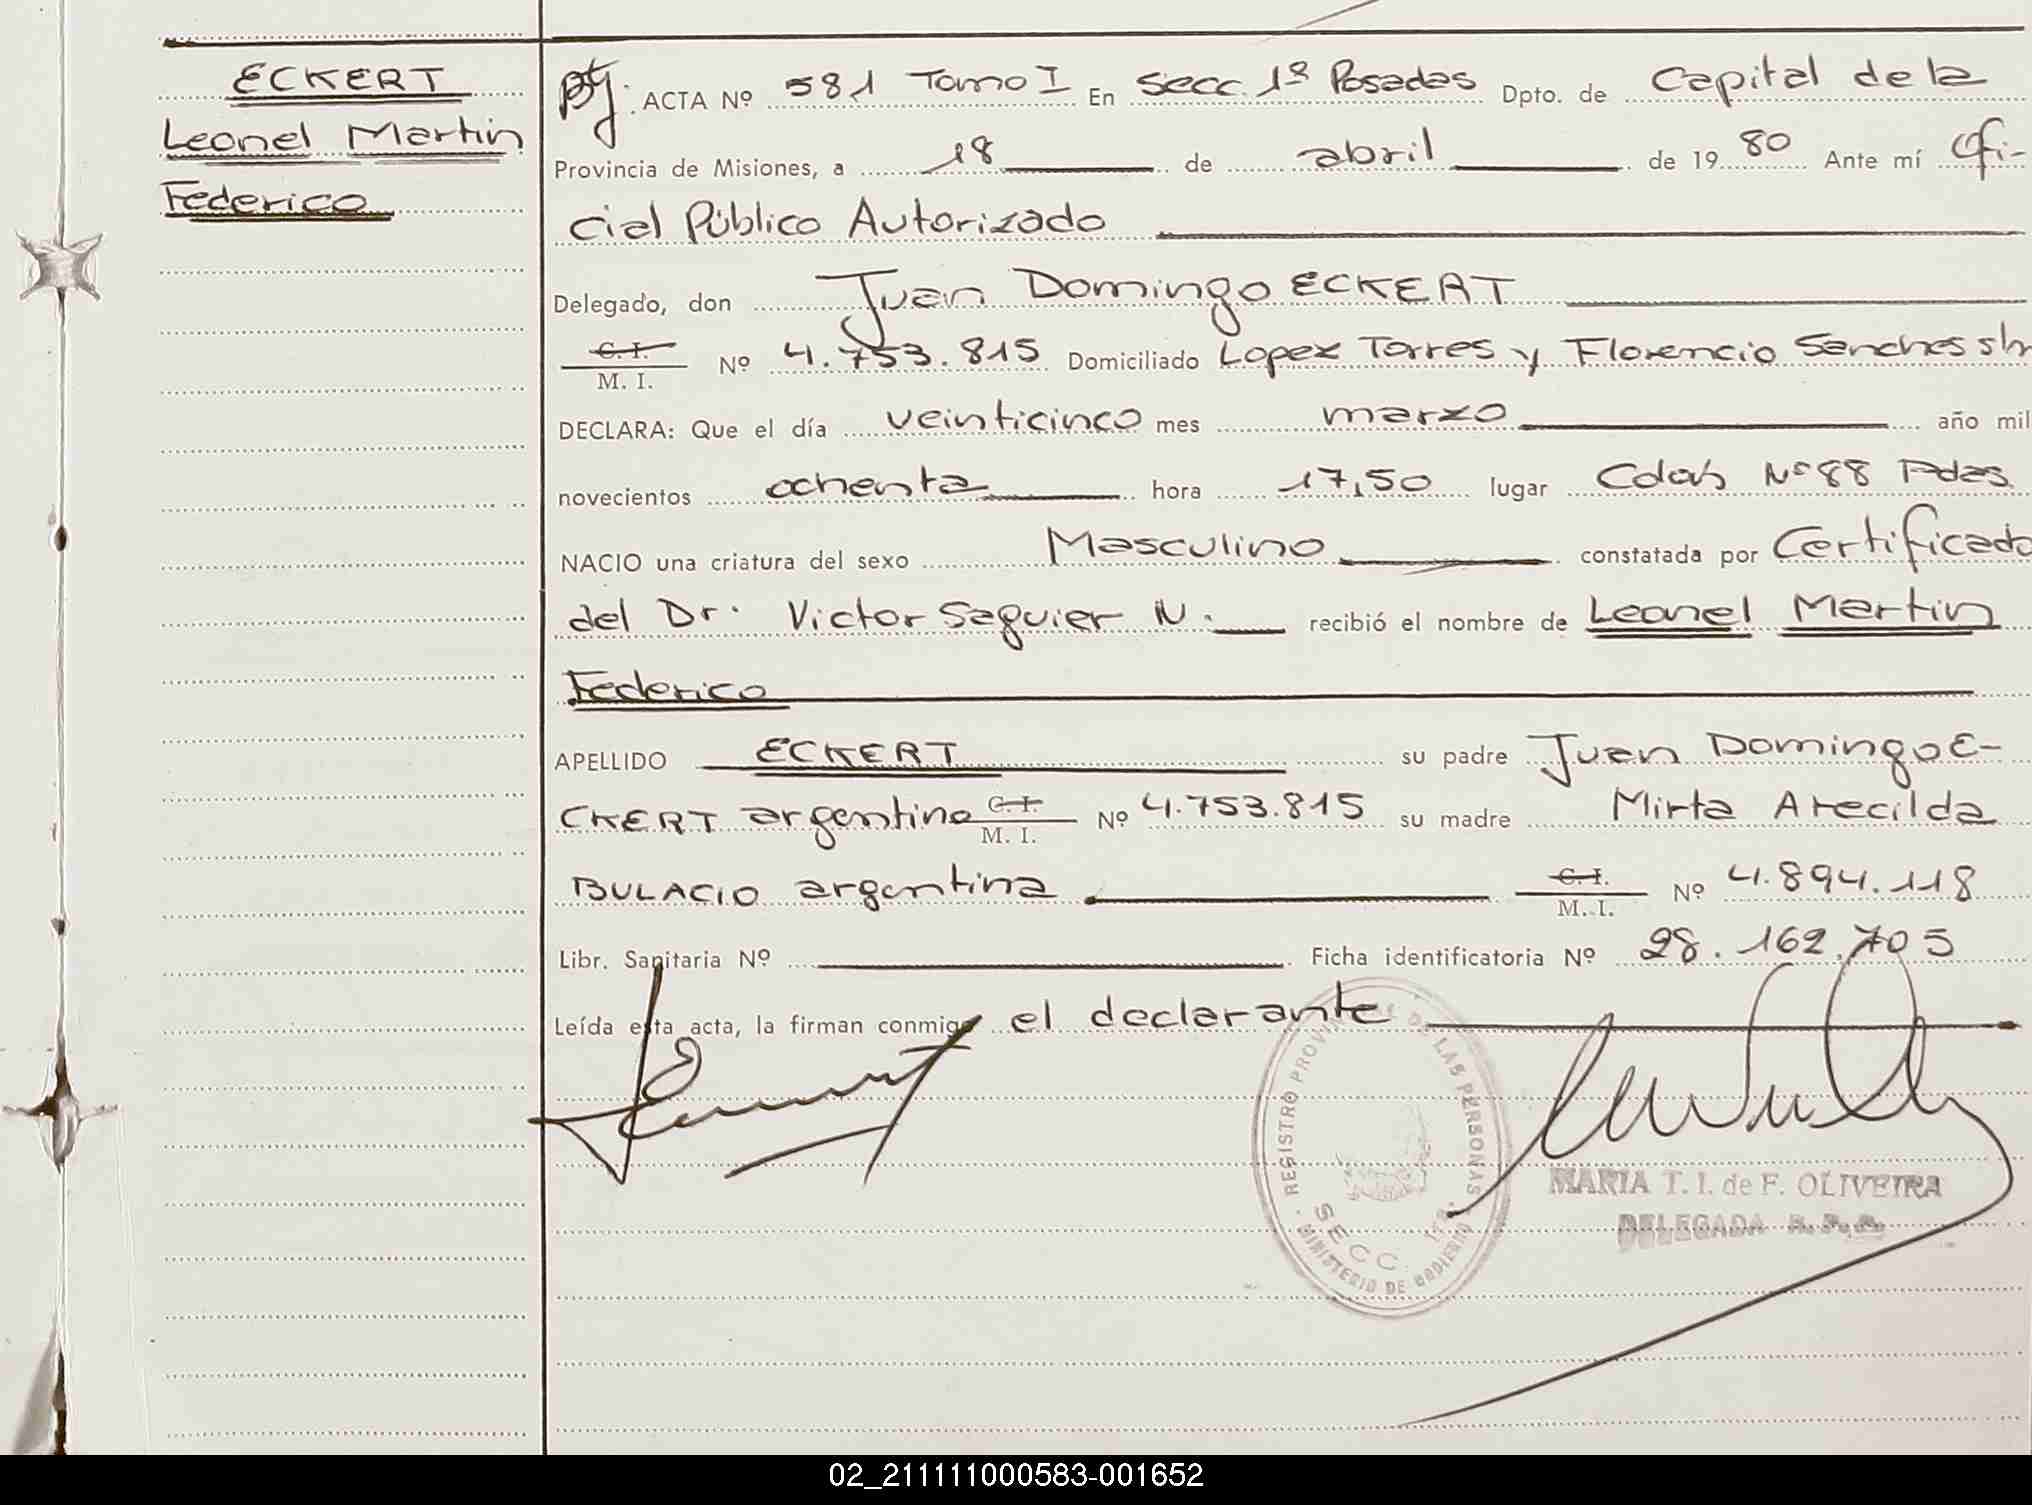 ECKERT
Leonel Martin
Federico
ACTA Nº 581 Tomo I En Secc. 1ª Posadas Dpto. de Capital de la
Provincia de Misiones, a 18 de abril de 1980 Ante mí Ofi-
cial Público Autorizado
Delegado, don Juan Domingo ECKERT
C. I.
M. I. Nº 4.753.815 Domiciliado Lopez Torres y Florencio Sanches s/n
DECLARA: Que el día veinticinco mes marzo año mil
novecientos ochenta hora 17,50 lugar Nº 88 Pdas.
NACIO una criatura del sexo Masculino constatada por Certificado
del Dr. Victor Saguier N. recibió el nombre de Leonel Martin
Federico
APELLIDO ECKERT su padre Juan Domingo E-
CKERT argentino C. I. M. I. Nº 4.753.815 su madre Mirta Arecilda
BULACIO argentina C. I. M. I. Nº 4.894.118
Libr. Sanitaria Nº Ficha identificatoria Nº 28.162.705
Leída esta acta, la firman conmigo el declarante
REGISTRO PROVINCIAL DE LAS PERSONAS
SECC. 1ra.
MINISTERIO DE GOBIERNO
MARIA T. I. de F. OLIVEIRA
DELEGADA R. P. P.
02_211111000583-001652